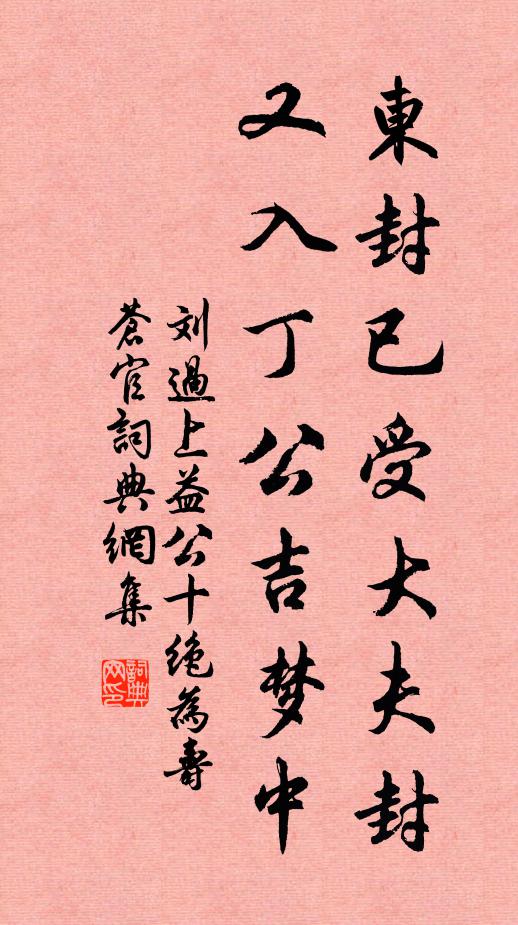 東封已受大夫封
又入丁公吉梦中
刘過上益公十绝為壽
蒼官詞典網集
詞典网印